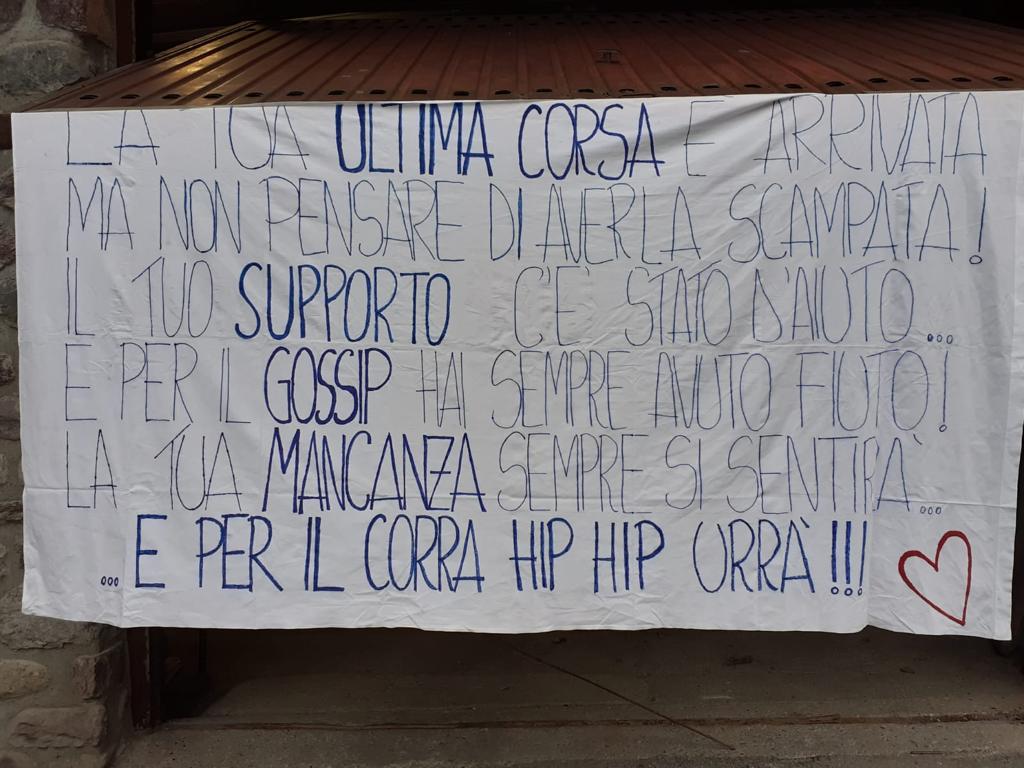 LA TUA ULTIMA CORSA E ARRIVATA
MA NON PENSARE DI AVERLA SCAMPATA!
IL TUO SUPPORTO C'E' STATO D'AIUTO...
E PER IL GOSSIP HAI SEMPRE AVUTO FIUTO!
LA TUA MANCANZA SEMPRE SI SENTIRÀ...
...E PER IL CORRA HIP HIP URRÀ!!!